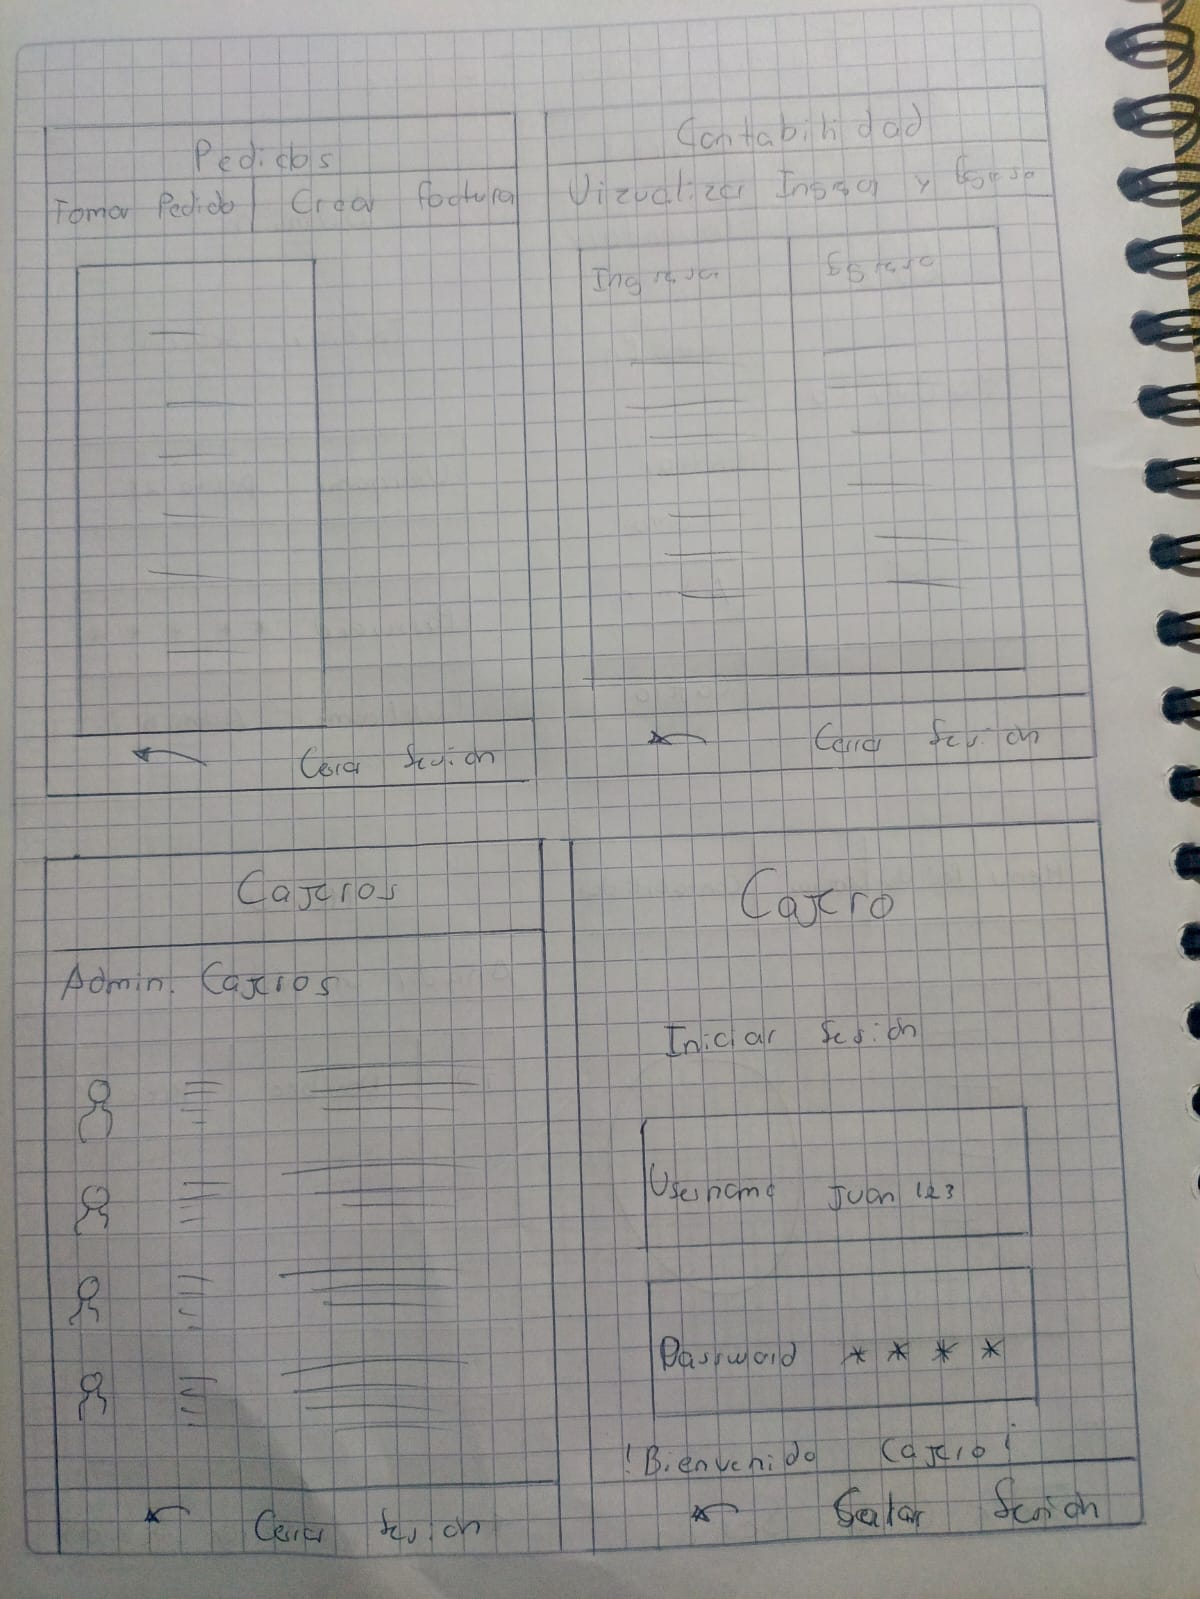 Pedidos
Tomar Pedido Crear factura
Cerrar Sesion
Contabilidad
Vizualizar Ingreso y Egreso
Ingreso Egreso
Cerrar Sesion
Cajeros
Admin. Cajeros
Cerrar Sesion
Cajero
Iniciar Sesion
Username Juan 123
Password * * * *
!Bienvenido Cajero!
Sesion